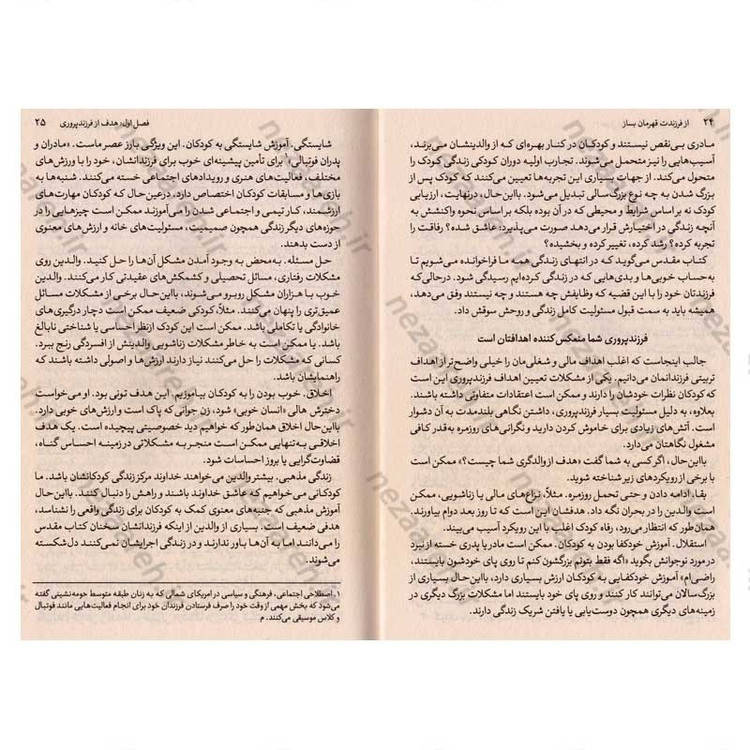 ۲۴ از فرزندت قهرمان بساز
مادری بی‌نقص نیستند و کودکان در کنار بهره‌ای که از والدینشان می‌برند،
آسیب‌هایی را نیز متحمل می‌شوند. تجارب اولیه دوران کودکی زندگی کودک را
متحول می‌کند. از جهات بسیاری این تجربه‌ها تعیین می‌کنند که کودک پس از
بزرگ شدن به چه نوع بزرگ‌سالی تبدیل می‌شود. بااین‌حال، درنهایت، ارزیابی
کودک نه بر اساس شرایط و محیطی که در آن بوده بلکه بر اساس نحوه واکنشش به
آنچه زندگی در اختیارش قرار می‌دهد صورت می‌پذیرد: عاشق شده؟ رفاقت را
تجربه کرده؟ رشد کرده، تغییر کرده و بخشیده؟
کتاب مقدس می‌گوید که در انتهای زندگی همه ما فراخوانده می‌شویم تا
به‌حساب خوبی‌ها و بدی‌هایی که در زندگی کرده‌ایم رسیدگی شود. درحالی‌که
فرزندتان خود را با این قضیه که وظایفش چه هستند و چه نیستند وفق می‌دهد،
همیشه باید به سمت قبول مسئولیت کامل زندگی و روحش سوقش داد.
فرزندپروری شما منعکس‌کننده اهدافتان است
جالب اینجاست که اغلب اهداف مالی و شغلی‌مان را خیلی واضح‌تر از اهداف
تربیتی فرزندانمان می‌دانیم. یکی از مشکلات تعیین اهداف فرزندپروری این است
که کودکان نظرات خودشان را دارند و ممکن است اعتقادات متفاوتی داشته باشند.
بعلاوه، به دلیل مسئولیت بسیار فرزندپروری، داشتن نگاهی بلندمدت به آن دشوار
است. آتش‌های زیادی برای خاموش کردن دارید و نگرانی‌های روزمره به‌قدر کافی
مشغول نگاهتان می‌دارد.
بااین‌حال، اگر کسی به شما گفت «هدف از والدگری شما چیست؟» ممکن است
با برخی از رویکردهای زیر شناخته شوید.
بقا. ادامه دادن و حتی تحمل روزمره. مثلاً، نزاع‌های مالی یا زناشویی، ممکن
است والدین را در بحران نگه داد. هدفشان این است که تا روز بعد دوام بیاورند.
همان‌طور که انتظار می‌رود، رفاه کودک اغلب با این رویکرد آسیب می‌بیند.
استقلال. آموزش خودکفا بودن به کودکان. ممکن است مادر یا پدری خسته از نبرد
در مورد نوجوانش بگوید «اگه فقط بتونم بزرگشون کنم تا روی پای خودشون بایستند،
راضی‌ام» آموزش خودکفایی به کودکان ارزش بسیاری دارد، بااین‌حال بسیاری از
بزرگ‌سالان می‌توانند کار کنند و روی پای خود بایستند اما مشکلات بزرگ دیگری در
زمینه‌های دیگری همچون دوست‌یابی یا یافتن شریک زندگی دارند.
فصل اول: هدف از فرزندپروری ۲۵
شایستگی. آموزش شایستگی به کودکان. این ویژگی بارز عصر ماست. «مادران و
پدران فوتبالی۱ برای تأمین پیشینه‌ای خوب برای فرزندانشان، خود را با ورزش‌های
مختلف، فعالیت‌های هنری و رویدادهای اجتماعی خسته می‌کنند. شنبه‌ها به
بازی‌ها و مسابقات کودکان اختصاص دارد. درعین‌حال که کودکان مهارت‌های
ارزشمند، کار تیمی و اجتماعی شدن را می‌آموزند ممکن است چیزهایی را در
حوزه‌های دیگر زندگی همچون صمیمیت، مسئولیت‌های خانه و ارزش‌های معنوی
از دست بدهند.
حل مسئله. به‌محض به وجود آمدن مشکل آن‌ها را حل کنید. والدین روی
مشکلات رفتاری، مسائل تحصیلی و کشمکش‌های عقیدتی کار می‌کنند. والدین
خوب با هزاران مشکل روبرو می‌شوند، بااین‌حال برخی از مشکلات مسائل
عمیق‌تری را پنهان می‌کنند. مثلاً، کودکی ضعیف ممکن است دچار درگیری‌های
خانوادگی یا تکاملی باشد. ممکن است این کودک ازنظر احساسی یا شناختی نابالغ
باشد. یا ممکن است به خاطر مشکلات زناشویی والدینش از افسردگی رنج ببرد.
کسانی که مشکلات را حل می‌کنند نیاز دارند ارزش‌ها و اصولی داشته باشند که
راهنمایشان باشد.
اخلاق. خوب بودن را به کودکان بیاموزیم. این هدف تونی بود. او می‌خواست
دخترش هالی «انسان خوبی» شود، زن جوانی که پاک است و ارزش‌های خوبی دارد.
بااین‌حال اخلاق همان‌طور که خواهیم دید خصوصیتی پیچیده است. یک هدف
اخلاقی به‌تنهایی ممکن است منجر به مشکلاتی در زمینه احساس گناه،
قضاوت‌گرایی یا بروز احساسات شود.
زندگی مذهبی. بیشتر والدین می‌خواهند خداوند مرکز زندگی کودکانشان باشد. ما
کودکانی می‌خواهیم که عاشق خداوند باشند و راهش را دنبال کنند. بااین‌حال
آموزش مذهبی که جنبه‌های معنوی کمک به کودکان برای زندگی واقعی را نشناسد،
هدفی ضعیف است. بسیاری از والدین از اینکه فرزندانشان سخنان کتاب مقدس
را می‌دانند اما به آن‌ها باور ندارند و در زندگی اجرایشان نمی‌کنند دل‌شکسته
می‌شوند.
۱. اصطلاحی اجتماعی، فرهنگی و سیاسی در امریکای شمالی که به زنان طبقه متوسط حومه‌نشینی گفته
می‌شود که بخش مهمی از وقت خود را صرف فرستادن فرزندان خود برای انجام فعالیت‌هایی مانند فوتبال
و کلاس موسیقی می‌کنند. م.